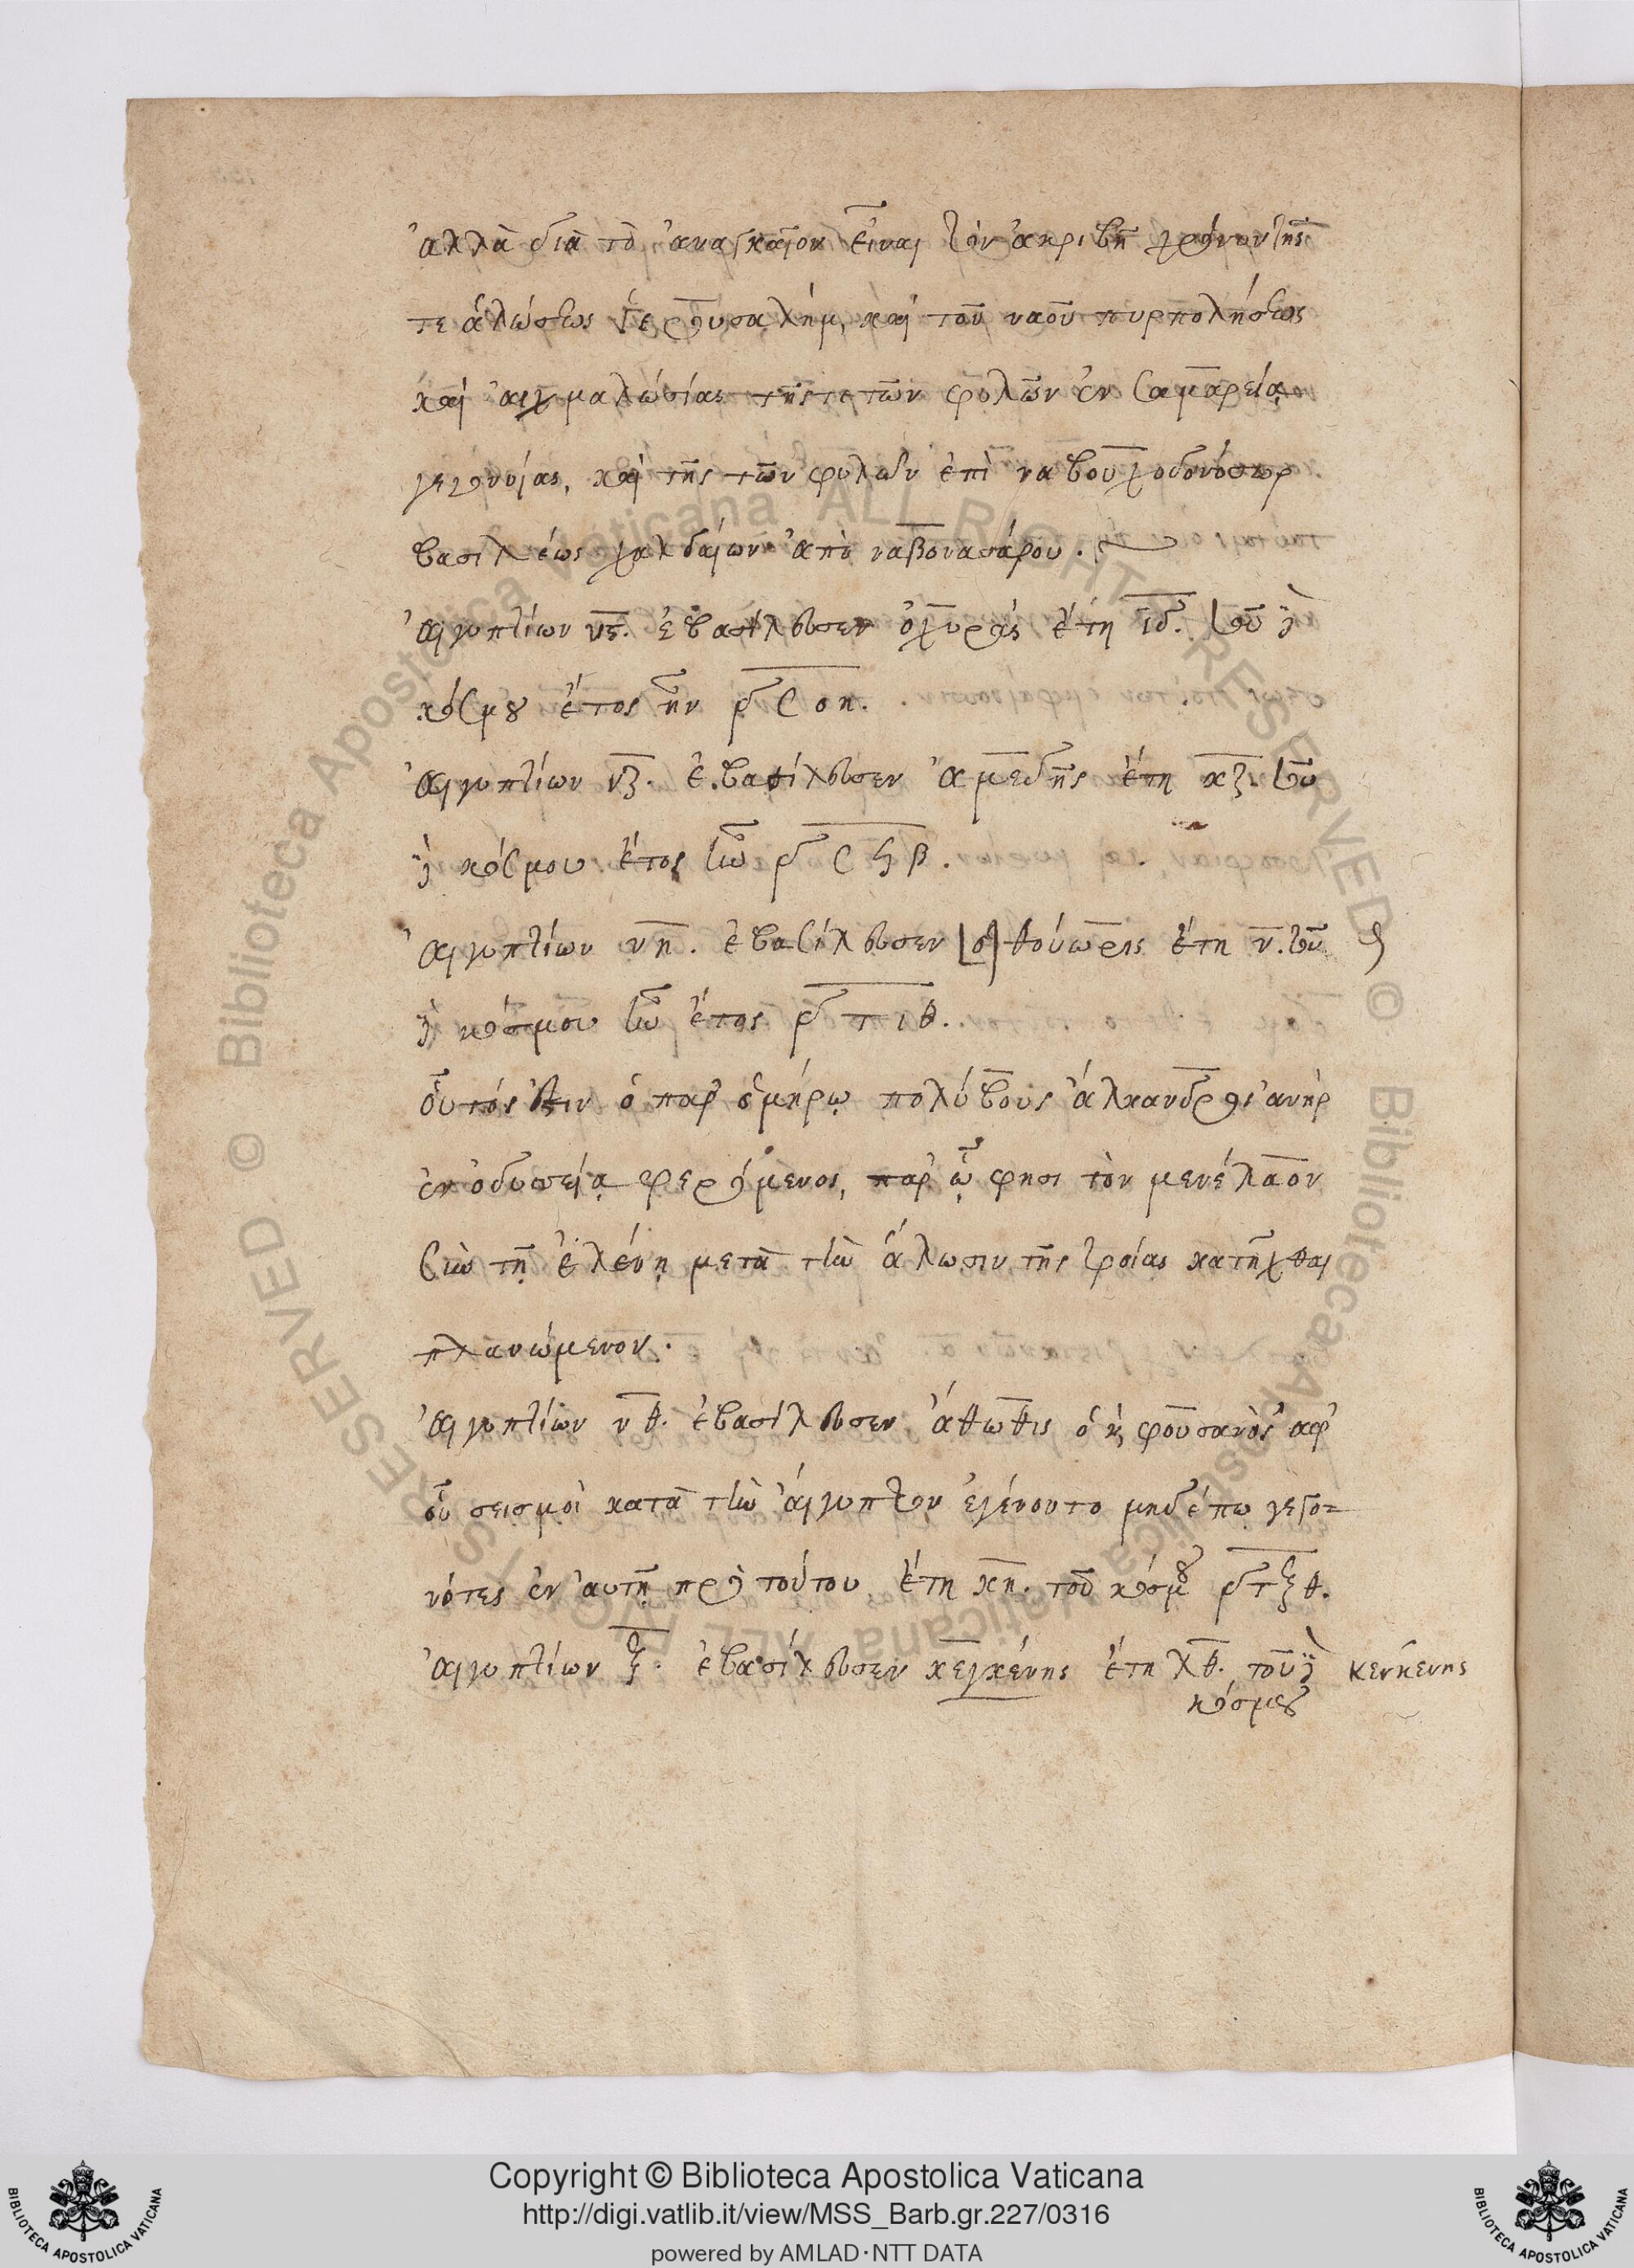 ἀλλὰ διὰ τὸ ἀναγκαῖον εἶναι τὸν ἀκριβῆ χρόνον τῆς
τε ἁλώσεως ἱερουσαλήμ, καὶ τοῦ ναοῦ πυρπολήσεως
καὶ αἰχμαλωσίας τῆς τε τῶν φυλῶν ἐν σαμαρείᾳ
γεγονυίας, καὶ τῆς τῶν φυλῶν ἐπὶ ναβουχοδονόσωρ
βασιλέως χαλδαίων ἀπὸ ναβονασάρου.
αἰγυπτίων νς. ἐβασίλευσεν ὀχυρὰς ἔτη ιδ. τοῦ
κόσμου ἔτος ἦν ͵δσοη.
αἰγυπτίων νζ. ἐβασίλευσεν ἀμεδῆς ἔτη κζ. τοῦ
κόσμου ἔτος ἦν ͵δσϟβ.
αἰγυπτίων νη. ἐβασίλευσεν [σ] θούωρις ἔτη ν. τοῦ
κόσμου ἦν ἔτος ͵δτιθ.
οὗτός ἐστιν ὁ παρ' ὁμήρῳ πολύβους ἀλκάνδρος ἀνὴρ
ἐν ὀδυσσείᾳ φερόμενος, παρ' ᾧ φησι τὸν μενέλαον
σὺν τῇ ἑλένῃ μετὰ τὴν ἅλωσιν τῆς τροίας κατῆχθαι
πλανώμενον.
αἰγυπτίων νθ. ἐβασίλευσεν ἄθωθις ὁ κ φουσανὸς ἀφ'
οὗ σεισμοὶ κατὰ τὴν αἴγυπτον ἐγένοντο μηδέπω γεγο=
νότες ἐν αὐτῇ πρὸ τούτου ἔτη κη. τοῦ κόσμου ͵δτξθ.
αἰγυπτίων ξ. ἐβασίλευσεν κεγκένης ἔτη λθ. τοῦ κενκενης
κόσμου
Copyright © Biblioteca Apostolica Vaticana
http://digi.vatlib.it/view/MSS_Barb.gr.227/0316
powered by AMLAD·NTT DATA
BIBLIOTECA APOSTOLICA VATICANA
BIBLIOTECA APOSTOLICA VATICANA